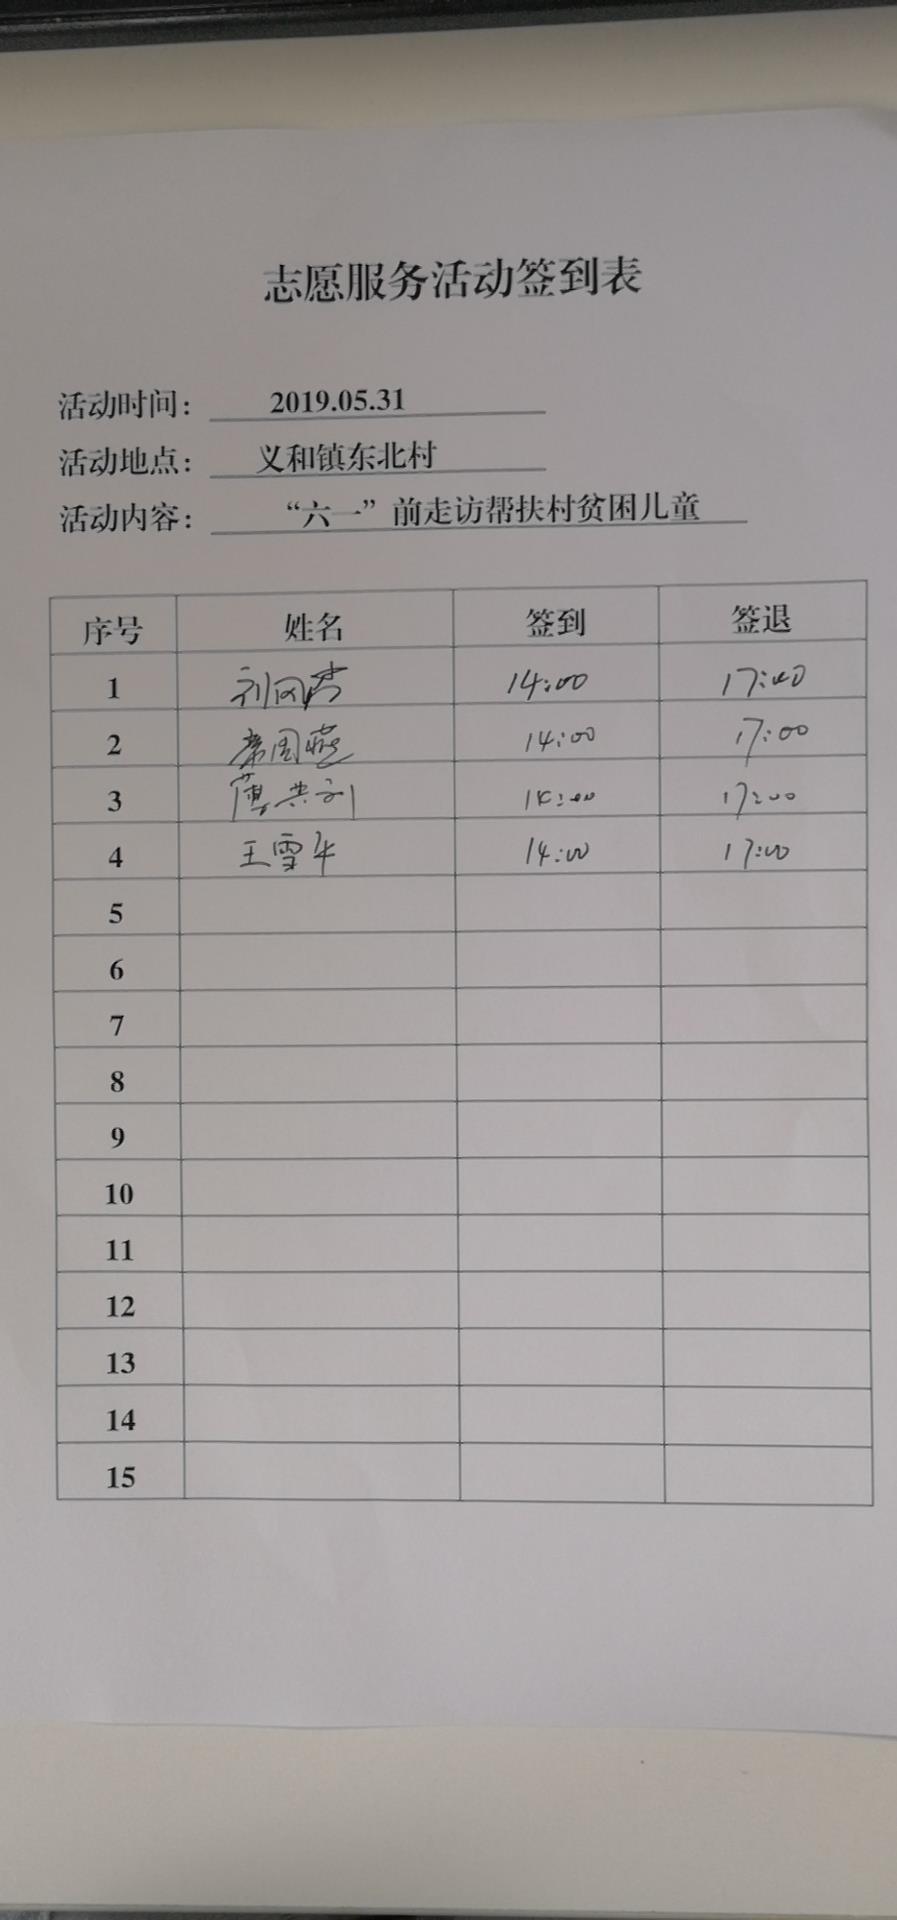 志愿服务活动签到表
活动时间： 2019.05.31
活动地点： 义和镇东北村
活动内容： “六一”前走访帮扶村贫困儿童
序号 姓名 签到 签退
1 14:00 17:00
2 14:00 17:00
3 14:00 17:00
4 王雪 14:00 17:00
5
6
7
8
9
10
11
12
13
14
15